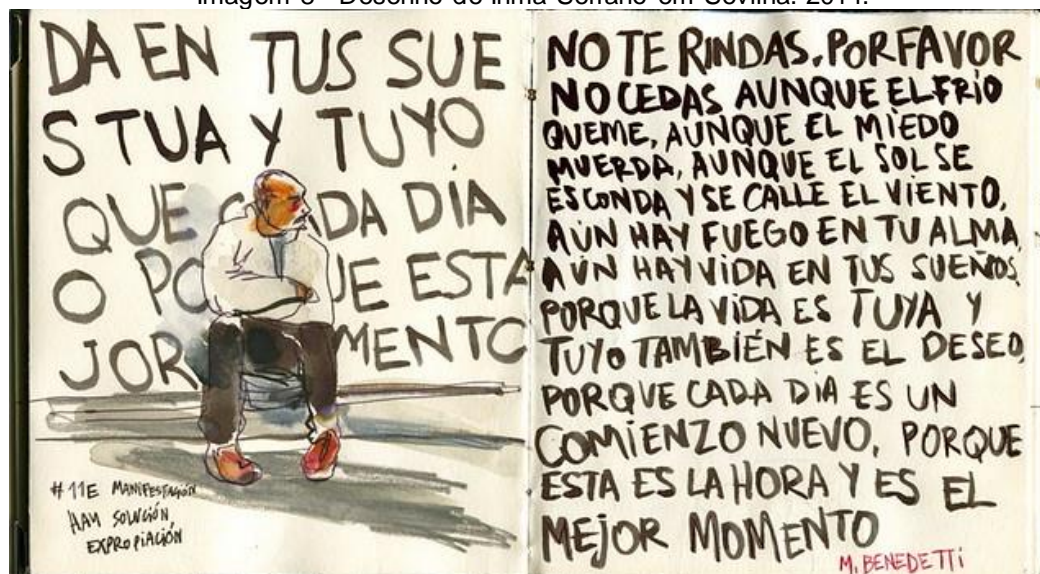 Imagem 8 - Desenho de Inma Serrano em Sevilha. 2014.
DA EN TUS SUE
S TUA Y TUYO
QUE CADA DÍA
O PO UE ESTA
JOR MENTO
#11E MANIFESTACIÓN
HAY SOLUCIÓN
EXPROPIACIÓN
NO TE RINDAS, POR FAVOR
NO CEDAS AUNQUE EL FRÍO
QUEME, AUNQUE EL MIEDO
MUERDA, AUNQUE EL SOL SE
ESCONDA Y SE CALLE EL VIENTO,
AÚN HAY FUEGO EN TU ALMA,
AÚN HAY VIDA EN TUS SUEÑOS,
PORQUE LA VIDA ES TUYA Y
TUYO TAMBIÉN ES EL DESEO,
PORQUE CADA DÍA ES UN
COMIENZO NUEVO, PORQUE
ESTA ES LA HORA Y ES EL
MEJOR MOMENTO
M. BENEDETTI